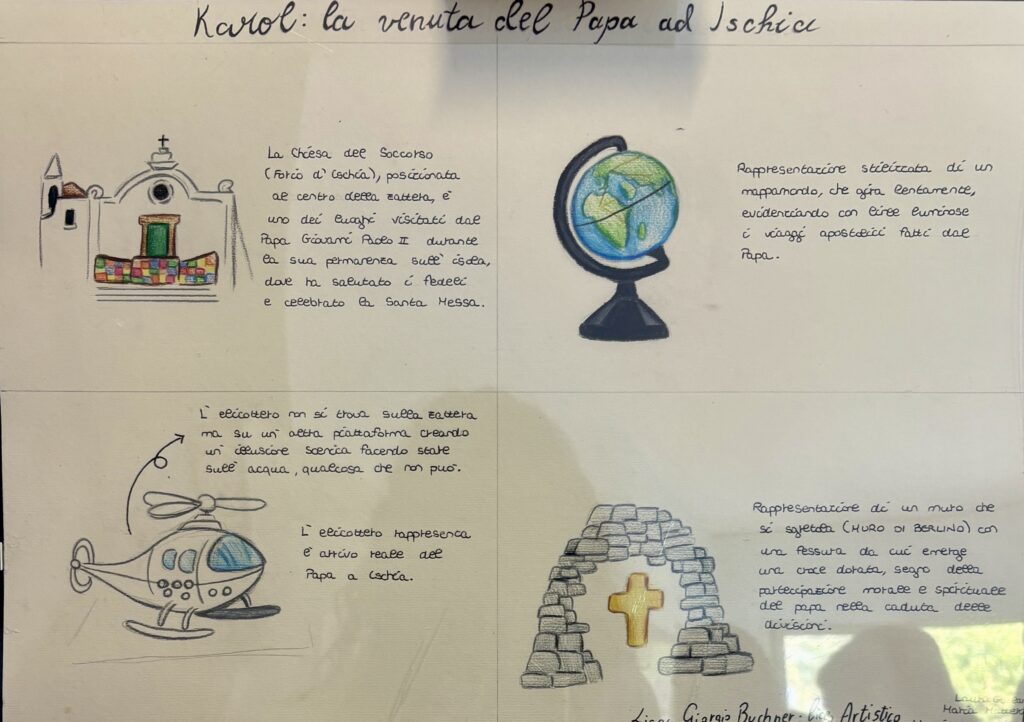 Karol: la venuta del Papa ad Ischia
La Chiesa del Soccorso
(Forio d'Ischia), posizionata
al centro della zattera, è
uno dei luoghi visitati dal
Papa Giovanni Paolo II durante
la sua permanenza sull'isola,
dove ha salutato i fedeli
e celebrato la Santa Messa.
Rappresentazione stilizzata di un
mappamondo, che gira lentamente,
evidenziando con linee luminose
i viaggi apostolici fatti dal
Papa.
L'elicottero non si trova sulla zattera
ma su un'altra piattaforma creando
un'illusione scenica facendo stare
sull'acqua, qualcosa che non può.
L'elicottero rappresenta
l'arrivo reale del
Papa a Ischia.
Rappresentazione di un muro che
si sgretola (MURO DI BERLINO) con
una fessura da cui emerge
una croce dorata, segno della
partecipazione morale e spirituale
del papa nella caduta delle
divisioni.
Giorgio Buchner Artistico
Maria